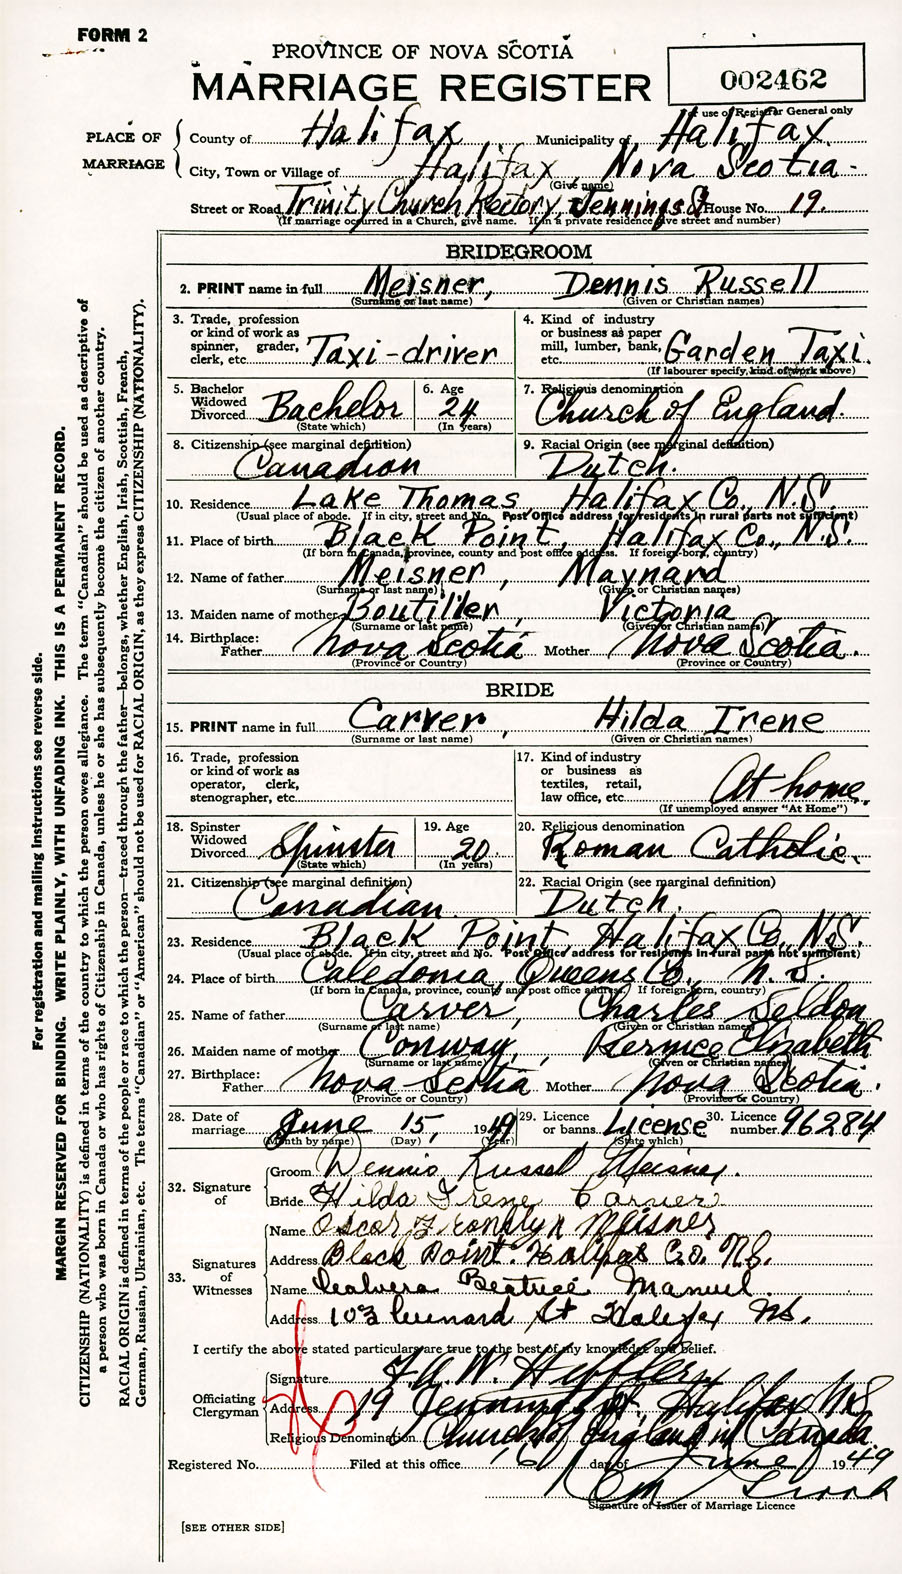 FORM 2
PROVINCE OF NOVA SCOTIA
MARRIAGE REGISTER
002462
For use of Registrar General only
PLACE OF MARRIAGE
County of Halifax Municipality of Halifax.
City, Town or Village of Halifax, Nova Scotia-
(Give name)
Street or Road Trinity Church Rectory, Jennings St House No. 19.
(If marriage occurred in a Church, give name. If in a private residence give street and number)
BRIDEGROOM
2. PRINT name in full Meisner, Dennis Russell
(Surname or last name) (Given or Christian names)
3. Trade, profession or kind of work as spinner, grader, clerk, etc. Taxi-driver
4. Kind of industry or business as paper mill, lumber, bank, etc. Garden Taxi.
(If labourer specify, kind of work above)
5. Bachelor Widowed Divorced Bachelor
(State which)
6. Age 24
(In years)
7. Religious denomination Church of England.
8. Citizenship (see marginal definition) Canadian
9. Racial Origin (see marginal definition) Dutch.
10. Residence Lake Thomas, Halifax Co., N.S.
(Usual place of abode. If in city, street and No. Post Office address for residents in rural parts not sufficient)
11. Place of birth Black Point, Halifax Co., N.S.
(If born in Canada, province, county and post office address. If foreign-born, country)
12. Name of father Meisner, Maynard
(Surname or last name) (Given or Christian names)
13. Maiden name of mother Boutilier, Victoria,
(Surname or last name) (Given or Christian names)
14. Birthplace: Father Nova Scotia Mother Nova Scotia.
(Province or Country) (Province or Country)
BRIDE
15. PRINT name in full Carver, Hilda Irene
(Surname or last name) (Given or Christian names)
16. Trade, profession or kind of work as operator, clerk, stenographer, etc.
17. Kind of industry or business as textiles, retail, law office, etc. At home.
(If unemployed answer "At Home")
18. Spinster Widowed Divorced Spinster
(State which)
19. Age 20.
(In years)
20. Religious denomination Roman Catholic.
21. Citizenship (see marginal definition) Canadian.
22. Racial Origin (see marginal definition) Dutch.
23. Residence Black Point, Halifax Co., N.S.
(Usual place of abode. If in city, street and No. Post Office address for residents in rural parts not sufficient)
24. Place of birth Caledonia, Queens Co., N.S.
(If born in Canada, province, county and post office address. If foreign-born, country)
25. Name of father Carver, Charles Seldon
(Surname or last name) (Given or Christian names)
26. Maiden name of mother Conway, Bernice Elizabeth
(Surname or last name) (Given or Christian names)
27. Birthplace: Father Nova Scotia Mother Nova Scotia.
(Province or Country) (Province or Country)
28. Date of marriage June 15, 1949
(Month by name) (Day) (Year)
29. Licence or banns. License
(State which)
30. Licence number. 96284
32. Signature of
Groom Dennis Russel Meisner.
Bride Hilda Irene Carver
33. Signatures of Witnesses
Name Oscar Meisner
Address Black Point. Halifax Co. N.S.
Name Beatrice Manuel.
Address 103 Leunard St Halifax N.S.
I certify the above stated particulars are true to the best of my knowledge and belief.
Officiating Clergyman
Signature
Address 19 Jennings St. Halifax N.S
Religious Denomination Church of England in Canada
Registered No. Filed at this office, 16 day of June 1949
Signature of Issuer of Marriage Licence
[SEE OTHER SIDE]
For registration and mailing instructions see reverse side.
MARGIN RESERVED FOR BINDING. WRITE PLAINLY, WITH UNFADING INK. THIS IS A PERMANENT RECORD.
CITIZENSHIP (NATIONALITY) is defined in terms of the country to which the person owes allegiance. The term "Canadian" should be used as descriptive of
a person who was born in Canada or who has rights of Citizenship in Canada, unless he or she has subsequently become the citizen of another country.
RACIAL ORIGIN is defined in terms of the people or race to which the person—traced through the father—belongs, whether English, Irish, Scottish, French,
German, Russian, Ukrainian, etc. The terms "Canadian" or "American" should not be used for RACIAL ORIGIN, as they express CITIZENSHIP (NATIONALITY).